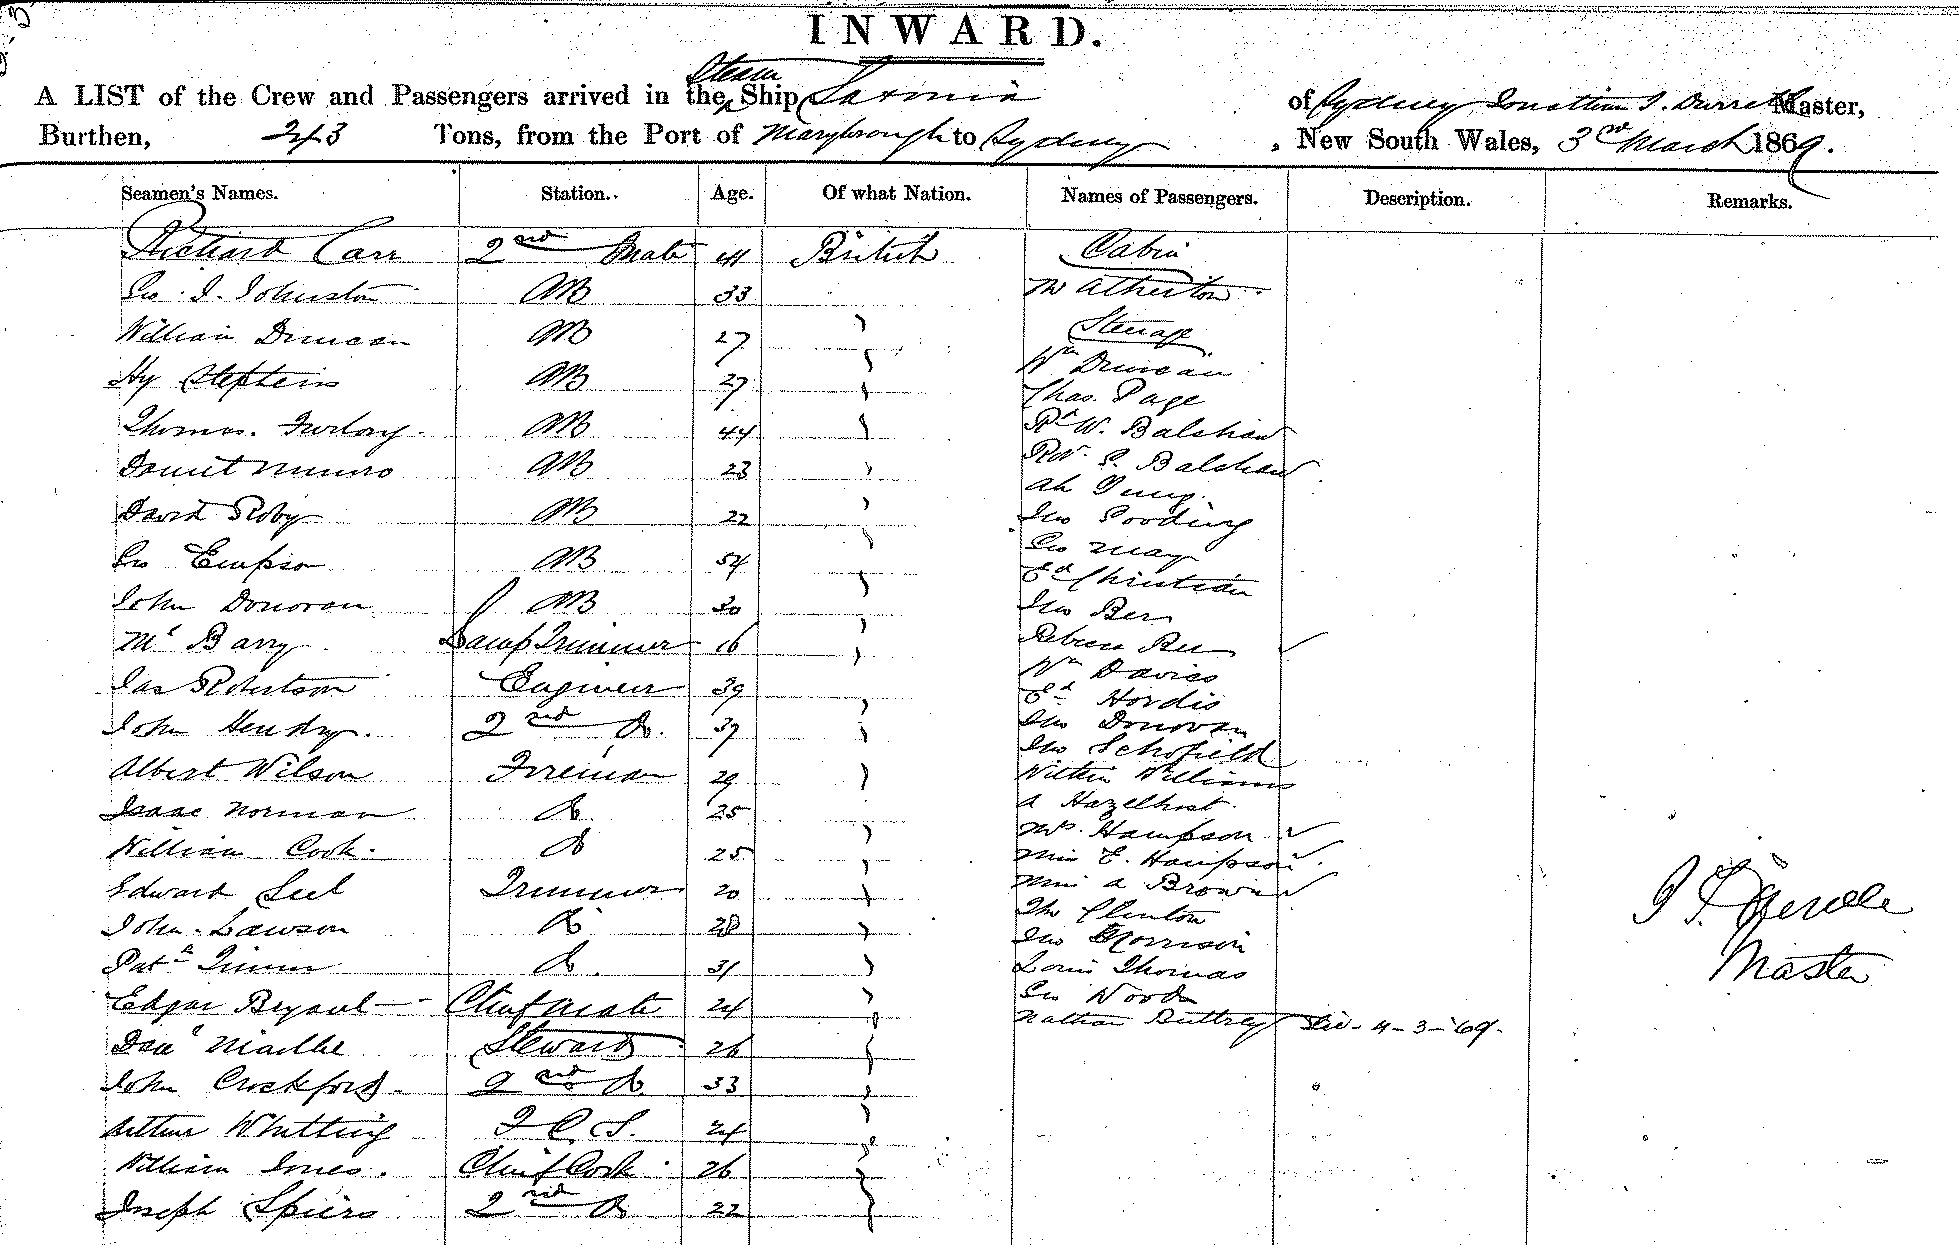 INWARD.
A LIST of the Crew and Passengers arrived in the Steam Ship of Sydney Master,
Burthen, 243 Tons, from the Port of Maryborough to Sydney, New South Wales, 3rd March 1869.
Seamen's Names. Station. Age. Of what Nation. Names of Passengers. Description. Remarks.
Richard Carr 2nd Mate 41 British Cabin
Geo. I. Johnston AB 33 Mr Atherton
William Duncan AB 27 Steerage
Hy Stephens AB 27 Wm Duncan
Chas. Page
Thomas AB 44 Rd W. Balshaw
Daniel Munro AB 23 Balshaw
Ah
David Roby AB 22 Jno Gooding
Geo May
Geo Empson AB 54 Ed Christian
John Donovan AB 30 Jno
Ml Barry Lamp Trimmer 16 Rebecca
Wm Davies
Jas Robertson Engineer 39 Ed Hordis
John Hendry. 2nd Do. 37 Jno Donovan
Jno Schofield
Albert Wilson Fireman 29 Williams
Isaac Norman Do 25 A Hazelhurst
Mrs. Hampson
William Cook. Do 25 Miss E. Hampson
Edward Trimmer 20 Miss A Brown
Clinton
John Lawson Do 28 Jno Morrison
Patk Do. 31 Louis Thomas
Edgar Bryant Chief Mate 24 Geo Woods
Nathan Buttrey 4-3-69.
Danl Steward 26
John Crockford 2nd Do. 33
Arthur Whitting 24
William Jones. Chief Cook 26
Joseph Spiers 2nd Do 22
Master